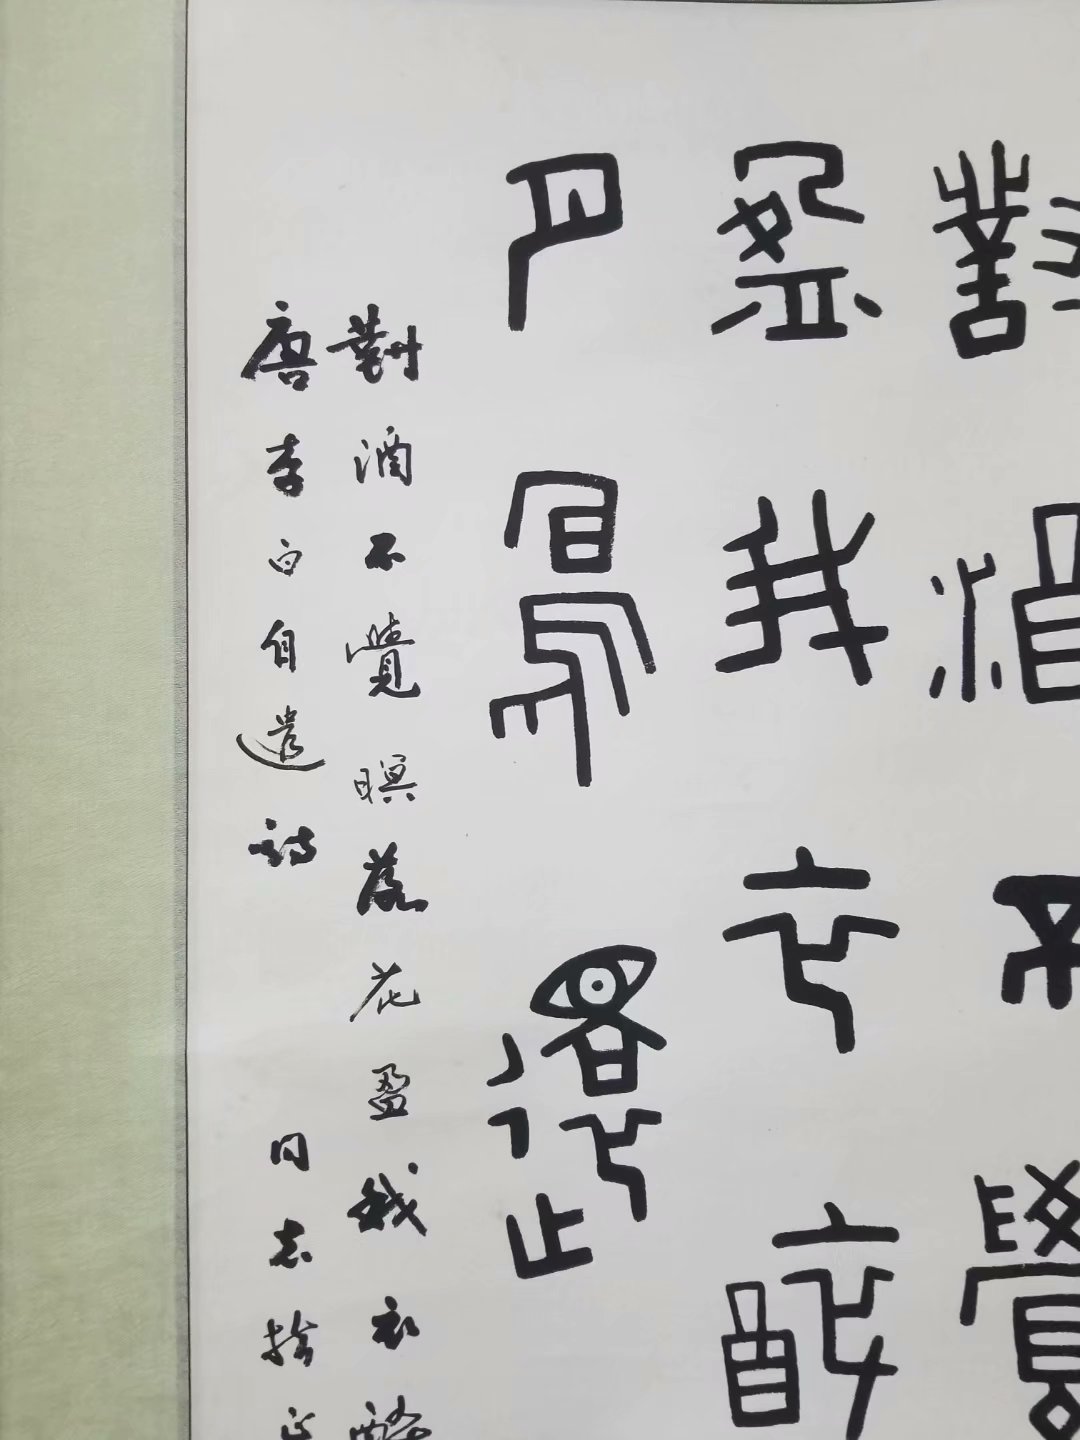 對酒不覺
盈我衣醉
月鳥還
對酒不覺暝落花盈我衣醉
唐李白自遣詩 同志指正